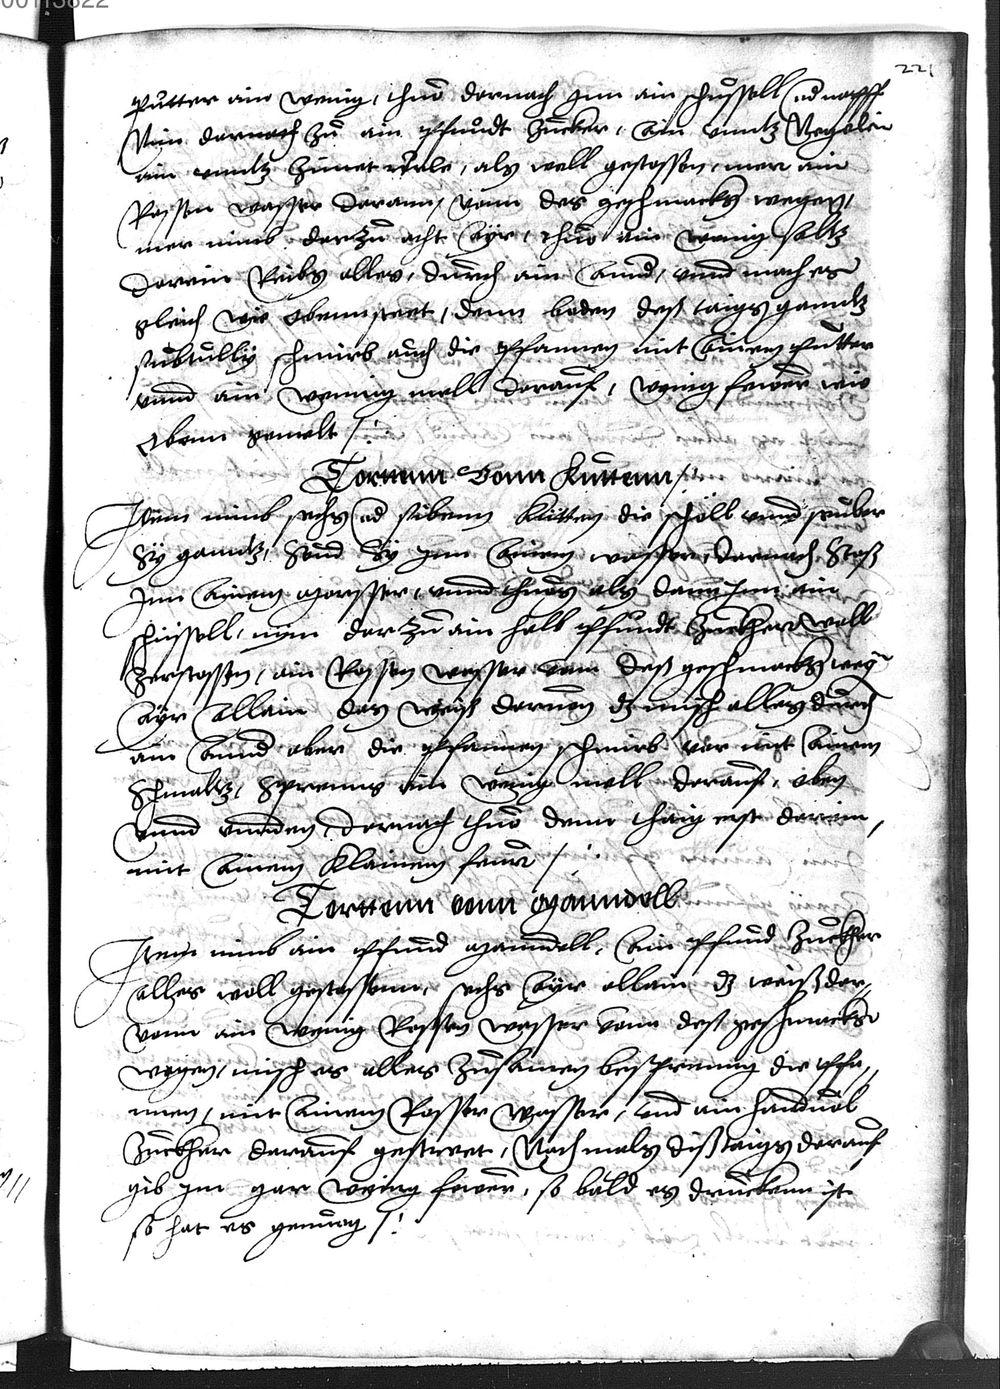 221
putter ain wenig, thuo darnach jnn ain schussell od napff
Nim darnach zu ain pfundt Zucker, ain vnntz Negelin
ain vnntz Zimet rörle, als woll gestossen, mer ain
Rossen wasser darann, vonn des geschmacks wegen,
mer nimb darzu acht ayr, thuo ain wenig saltz
darein Reibs alles, durch ain annd, vnnd mach es
gleich wie obennsteet, denn boden deß taigs ganntz
subtully schmirb auch die pfannen mit ainem putter
vnnd ain wennig mell darauf, wenig fewer wie
oben gemelt /:
Torttenn vonn Kuttenn /:
Item nimb sechs od sibenn Kutten die schöll vnnd seuber
sy ganntz, seud sy jnn ainem wasser, darnach stoß
jnn ainem morsser, vnnd thuos als dann jnn ain
schussell, nim darzu ain halb pfundt Zuckher woll
zerstossen, ain Rossen wasser vonn deß geschmacks weg
ayr allain das weis darvon dz misch alles durch
ain annd aber die pfannen schmirb vor mit ainem
schmaltz, spreng ain wenig mell darauf, oben
vnnd vnnden, darnach thuo denn thaig erst darein,
mit ainem klainem feuer /:
Torttenn vonn Manndell
Item nimb ain pfund manndell, ain pfund Zuckher
alles woll gestossenn, sechs ayr allain dz weiß dar„
vonn ain wenig Rossen wasser vonn deß geschmacks
wegen, misch es alles zusamen besprenng die pfa„
nnen, mit ainem Rosser wasser, vnd ain handuol
Zuckher darauf gestreet, Nachmals diß taigs darauf
gib jm gar wenig fewer, so bald es druckenn ist
so hat es genuog /: